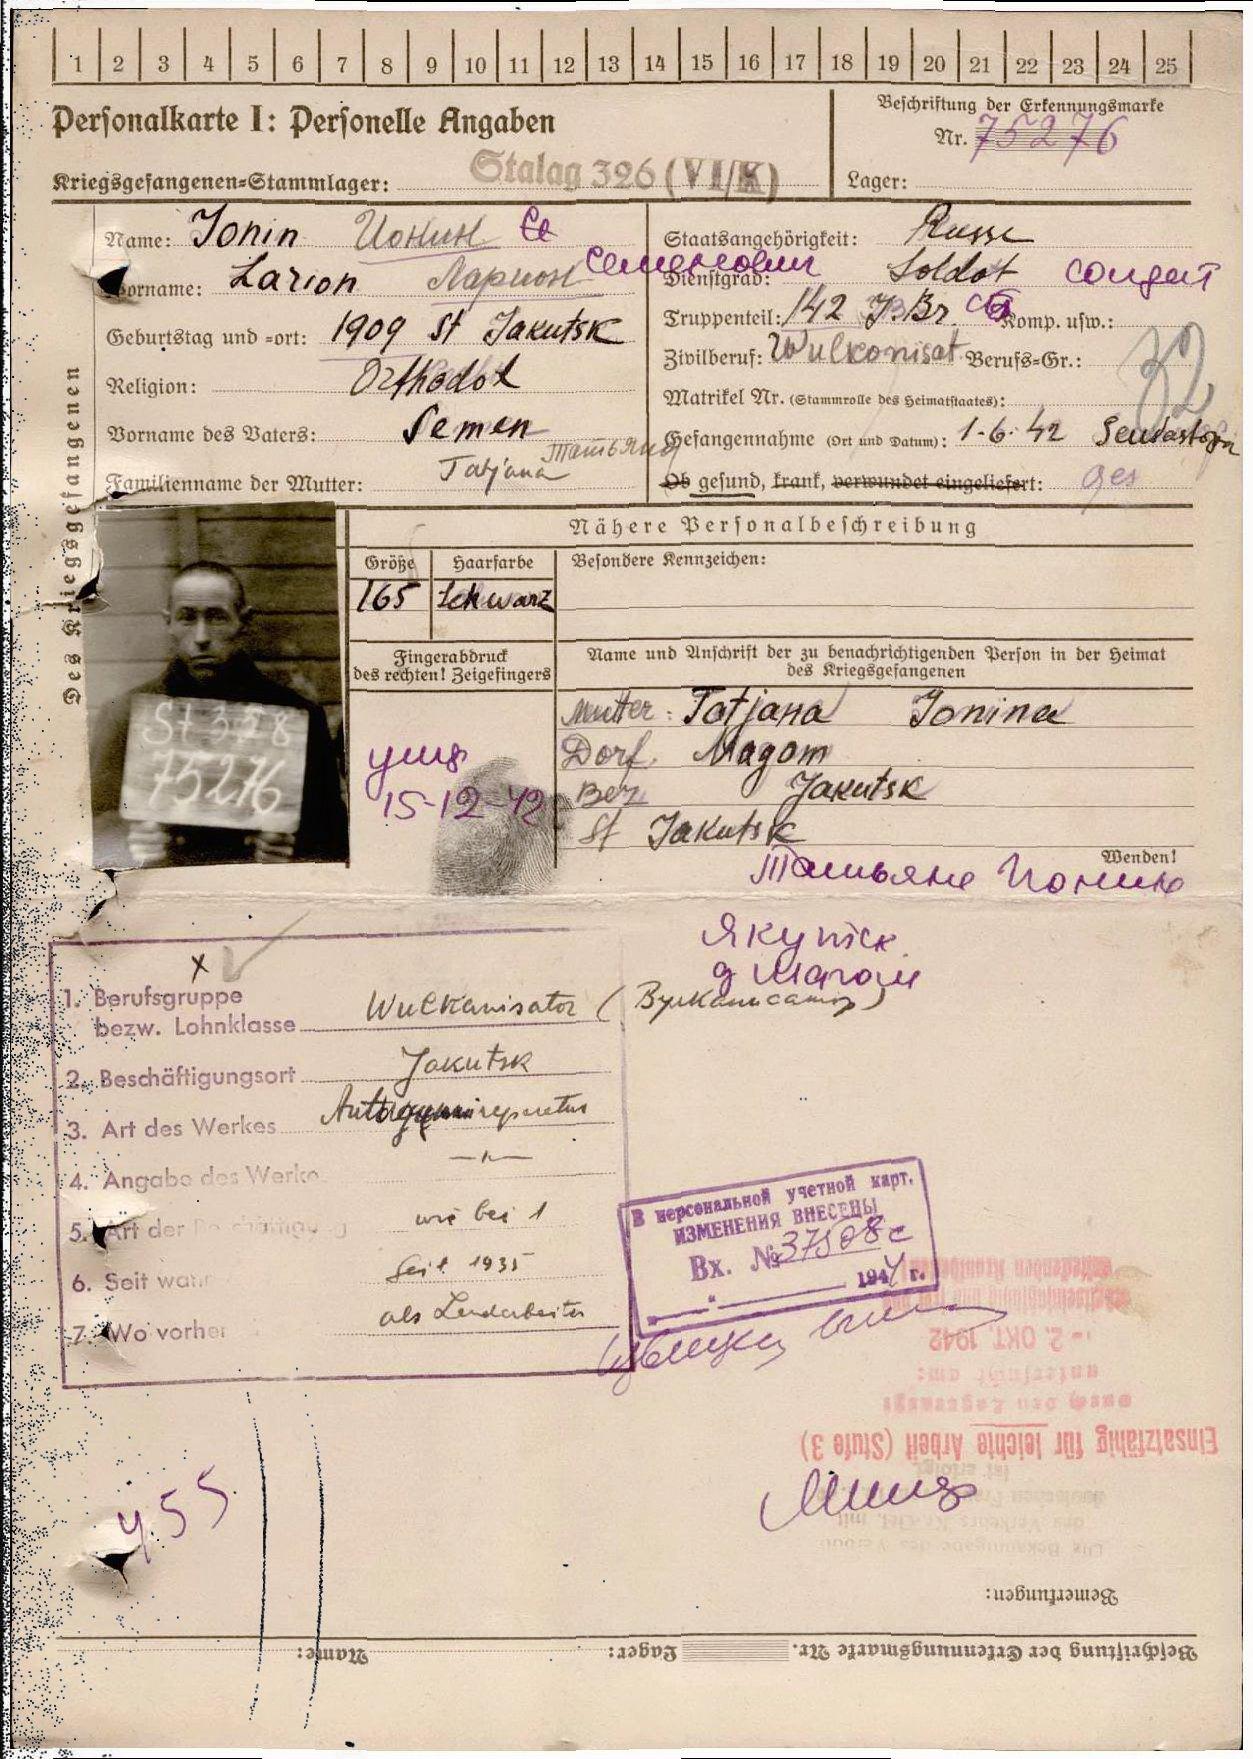 1 2 3 4 5 6 7 8 9 10 11 12 13 14 15 16 17 18 19 20 21 22 23 24 25
Personalkarte I: Personelle Angaben
Beschriftung der Erkennungsmarke
Nr. 75276
Kriegsgefangenen-Stammlager: Stalag 326 (VI/K)
Lager:
Des Kriegsgefangenen
Name: Jonin Ионин Се
Vorname: Larion Ларион Семенович
Geburtstag und -ort: 1909 St Jakutsk
Religion: Orthodox
Vorname des Vaters: Semen
Familienname der Mutter: Tatjana Татьяна
Staatsangehörigkeit: Russe
Dienstgrad: Soldat солдат
Truppenteil: 142 J. Br Komp. usw.:
Zivilberuf: Wulkonisat Berufs-Gr.: 32
Matrikel Nr. (Stammrolle des Heimatstaates):
Gefangennahme (Ort und Datum): 1.6.42 Sewastopol
Ob gesund, krank, verwundet eingeliefert: ges
Nähere Personalbeschreibung
Größe Haarfarbe Besondere Kennzeichen:
165 schwarz
Fingerabdruck
des rechten! Zeigefingers
Name und Anschrift der zu benachrichtigenden Person in der Heimat
des Kriegsgefangenen
St 358
75276
умер
15-12-42
Mutter: Tatjana Jonina
Dorf. Magom
Bez Jakutsk
St Jakutsk
Wenden!
Татьяне Ионине
Якутск
д Магом
x
1. Berufsgruppe
bezw. Lohnklasse Wulkanisator (Вулканисатор)
2. Beschäftigungsort Jakutsk
3. Art des Werkes reperatur
4. Angabe des Werke
5. Art der wie bei 1
6. Seit wann seit 1935
7. Wo vorher als Landarbeiter
В персональной учетной карт.
ИЗМЕНЕНИЯ ВНЕСЕНЫ
Вх. № 37508с
1947 г.
- 2. OKT. 1942
Einsatzfähig für leichte Arbeit (Stufe 3)
у.55
Bemerkungen:
Beschriftung der Erkennungsmarke Nr. Lager: Name: